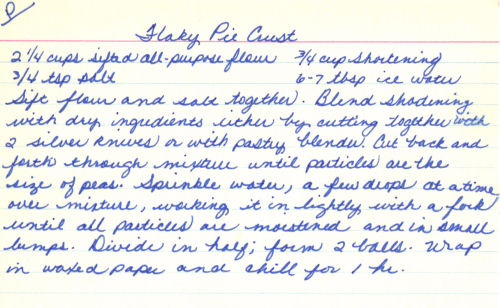 P
Flaky Pie Crust
2 1/4 cups sifted all-purpose flour 3/4 cup shortening
3/4 tsp salt 6-7 tbsp ice water
Sift flour and salt together. Blend shortening
with dry ingredients either by cutting together with
2 silver knives or with pastry blender. Cut back and
forth through mixture until particles are the
size of peas. Sprinkle water, a few drops at a time
over mixture, working it in lightly with a fork
until all particles are moistened and in small
lumps. Divide in half; form 2 balls. Wrap
in waxed paper and chill for 1 hr.